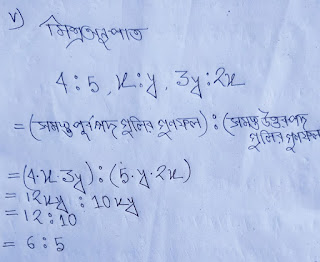 v) মিশ্রঅনুপাত
4:5, x:y, 3y:2x
=(সমস্ত পূর্বপদ গুলির গুণফল):(সমস্ত উত্তরপদ
গুলির গুণফল
=(4·x·3y):(5·y·2x)
=12xy:10xy
=12:10
=6:5